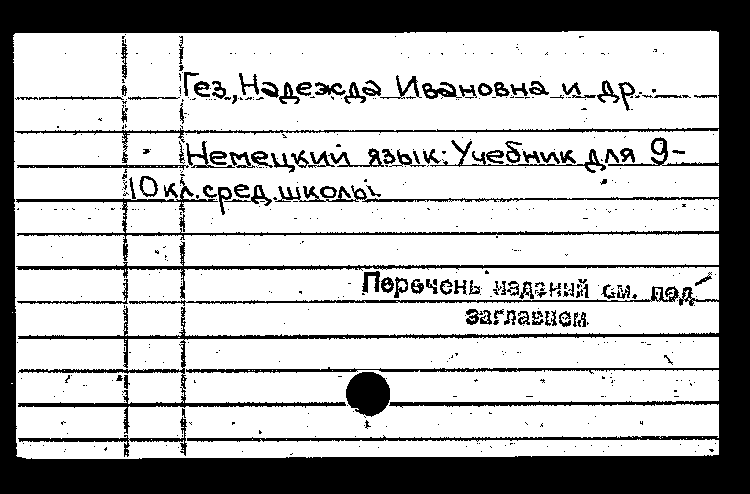 Гез, Надежда Ивановна и др.
Немецкий язык: Учебник для 9-
10 кл. сред. школы.
Перечень изданий см. под
заглавием